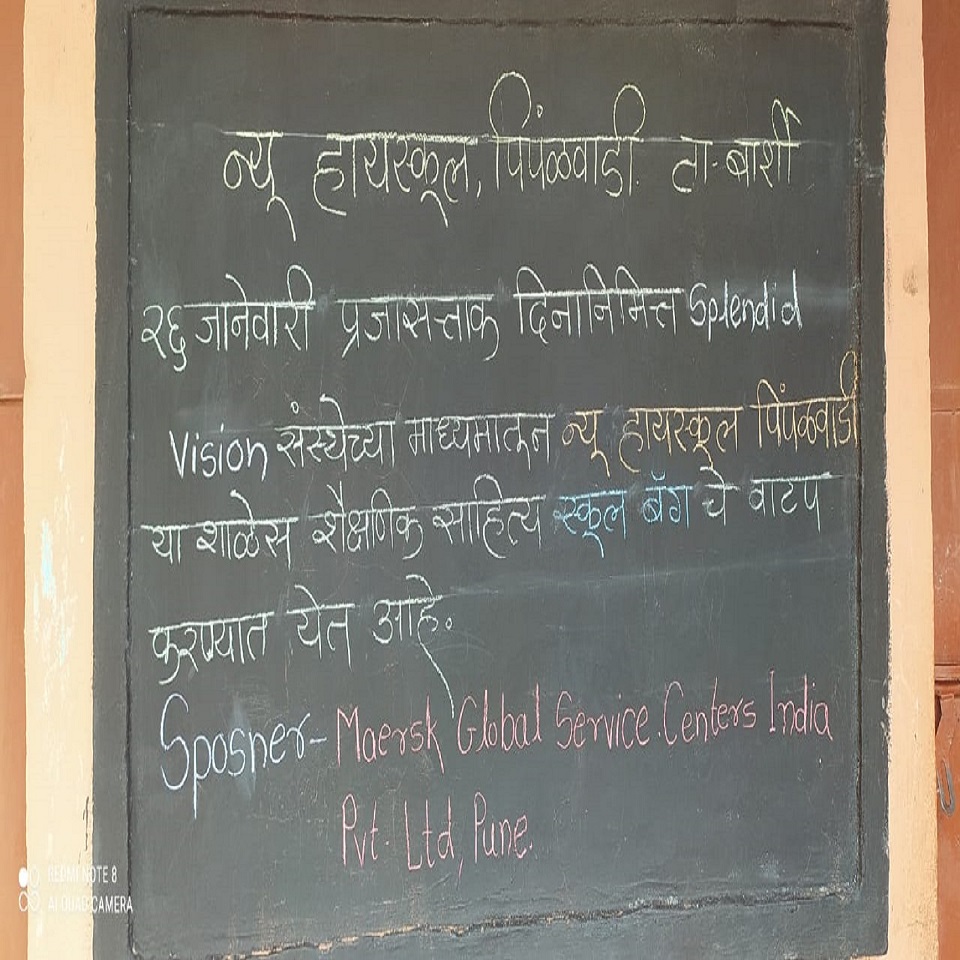 न्यू हायस्कूल, पिंपळवाडी. ता. बार्शी
२६ जानेवारी प्रजासत्ताक दिनानिमित्त Splendid
Vision संस्थेच्या माध्यमातून न्यू हायस्कूल पिंपळवाडी
या शाळेस शैक्षणिक साहित्य स्कूल बॅग चे वाटप
करण्यात येत आहे.
Sposner- Maersk Global Service Centers India
Pvt. Ltd, Pune.
REDMI NOTE 8
AI QUAD CAMERA